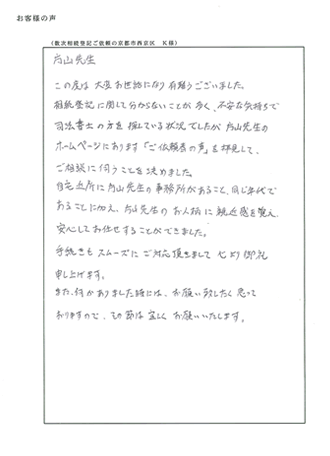 お客様の声
（数次相続登記ご依頼の京都市西京区　K様）
片山先生
この度は大変お世話になり有難うございました。
相続登記に関して分からないことが多く、不安な気持ちで
司法書士の方を探している状況でしたが片山先生の
ホームページにあります「ご依頼者の声」を拝見して、
ご相談に伺うことを決めました。
自宅近所に片山先生の事務所があること、同じ年代で
あることに加え、片山先生のお人柄に親近感を覚え、
安心してお任せすることができました。
手続きもスムーズにご対応頂きまして心より御礼
申し上げます。
また、何かありました時には、お願い致したく思って
おりますので、その節は宜しくお願いいたします。